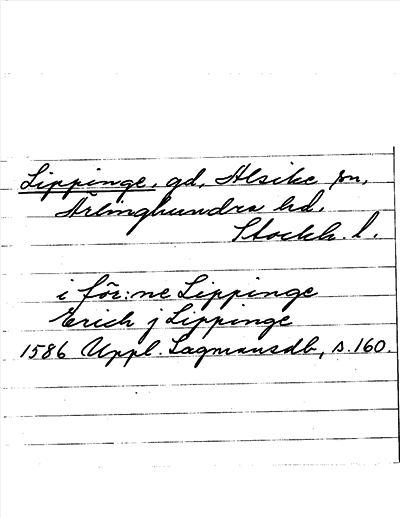 Lippinge, gd, Alsike sn,
Ärlinghundra hd,
Stockh. l.
i för:ne Lippinge
Erich j Lippinge
1586 Uppl. Lagmansdb, s. 160.